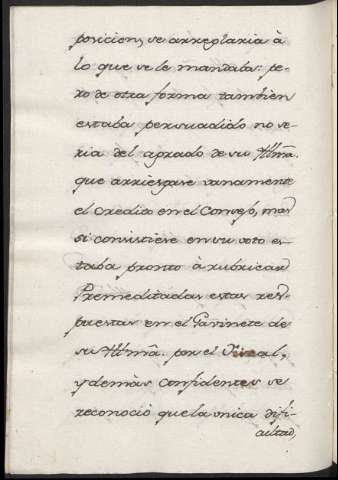 posicion, se arreglaria à
lo que se le mandaba: pe-
ro de otra forma tambien
estaba persuadido no se-
ria del agrado de su Illmã.
que arriesgase vanamente
el credito en el Consejo, mas
si consistiese en su voto es-
taba pronto à rubricar
Premeditadas estas res-
puestas en el Gavinete de
su Illmã. por el Fiscal,
y demàs confidentes se
reconociò que la unica difi-
cultad,